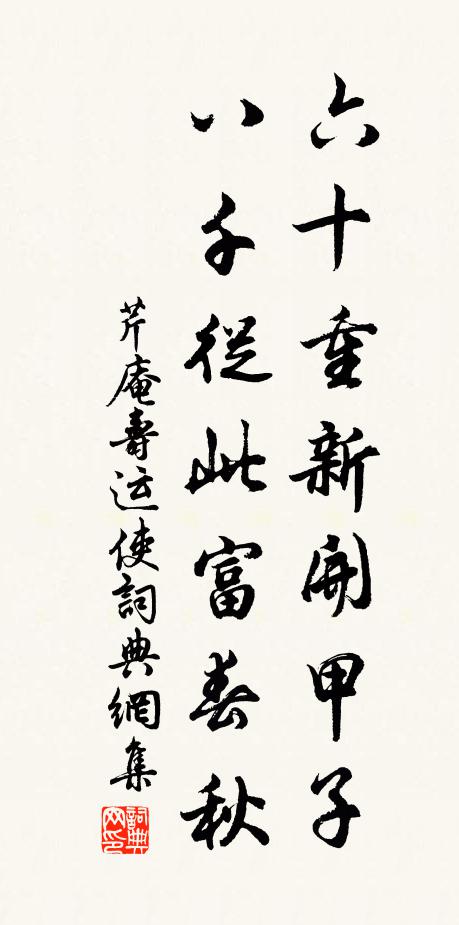 六十重新開甲子
八千從此富春秋
芹庵壽运使詞典網集
詞典网印